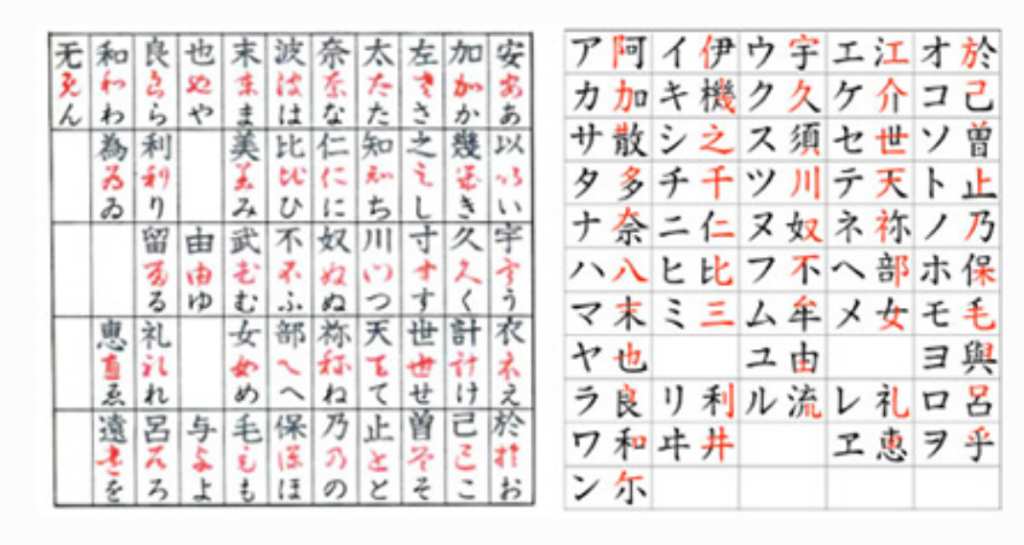 安あ 加か 左さ 太た 奈な 波は 末ま 也や 良ら 和わ 无ん
以い 幾き 之し 知ち 仁に 比ひ 美み 利り 為ゐ
宇う 久く 寸す 川つ 奴ぬ 不ふ 武む 由ゆ 留る
衣え 計け 世せ 天て 祢ね 部へ 女め 礼れ 恵ゑ
於お 己こ 曽そ 止と 乃の 保ほ 毛も 与よ 呂ろ 遠を
ア阿 イ伊 ウ宇 エ江 オ於
カ加 キ機 ク久 ケ介 コ己
サ散 シ之 ス須 セ世 ソ曽
タ多 チ千 ツ川 テ天 ト止
ナ奈 ニ仁 ヌ奴 ネ祢 ノ乃
ハ八 ヒ比 フ不 ヘ部 ホ保
マ末 ミ三 ム牟 メ女 モ毛
ヤ也 ユ由 ヨ與
ラ良 リ利 ル流 レ礼 ロ呂
ワ和 ヰ井 ヱ恵 ヲ乎
ン尓